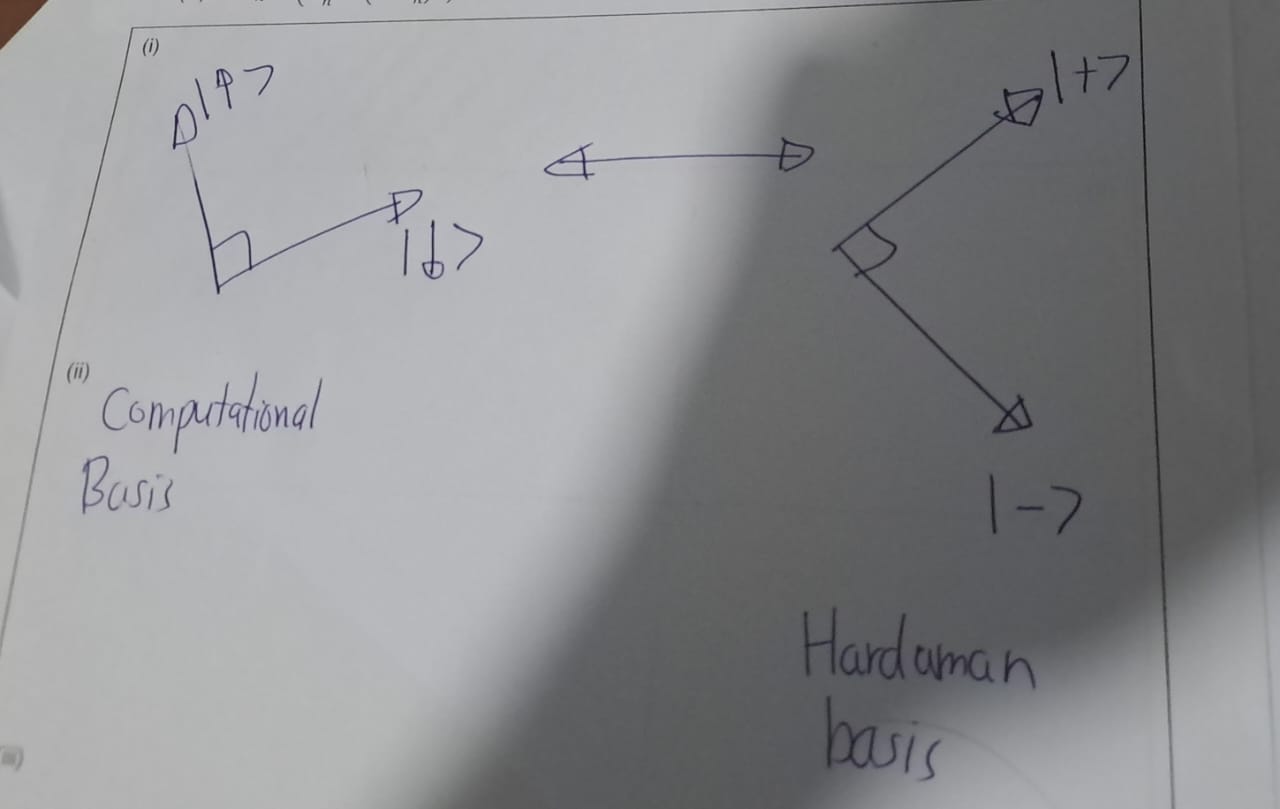 (i)
|↑>
|+>
|↓>
(ii)
Computational
Basis
|->
Hardaman
basis